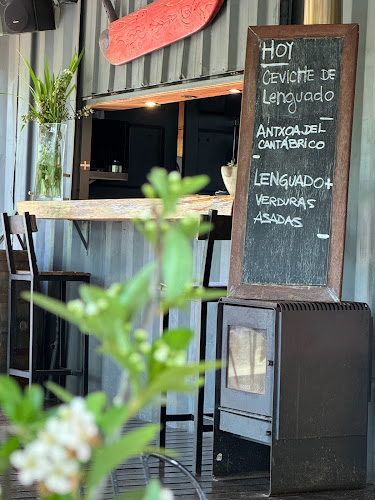 HOY
CEVICHE DE
Lenguado
ANTXOA DEL
CANTÁBRICO
LENGUADO +
VERDURAS
ASADAS